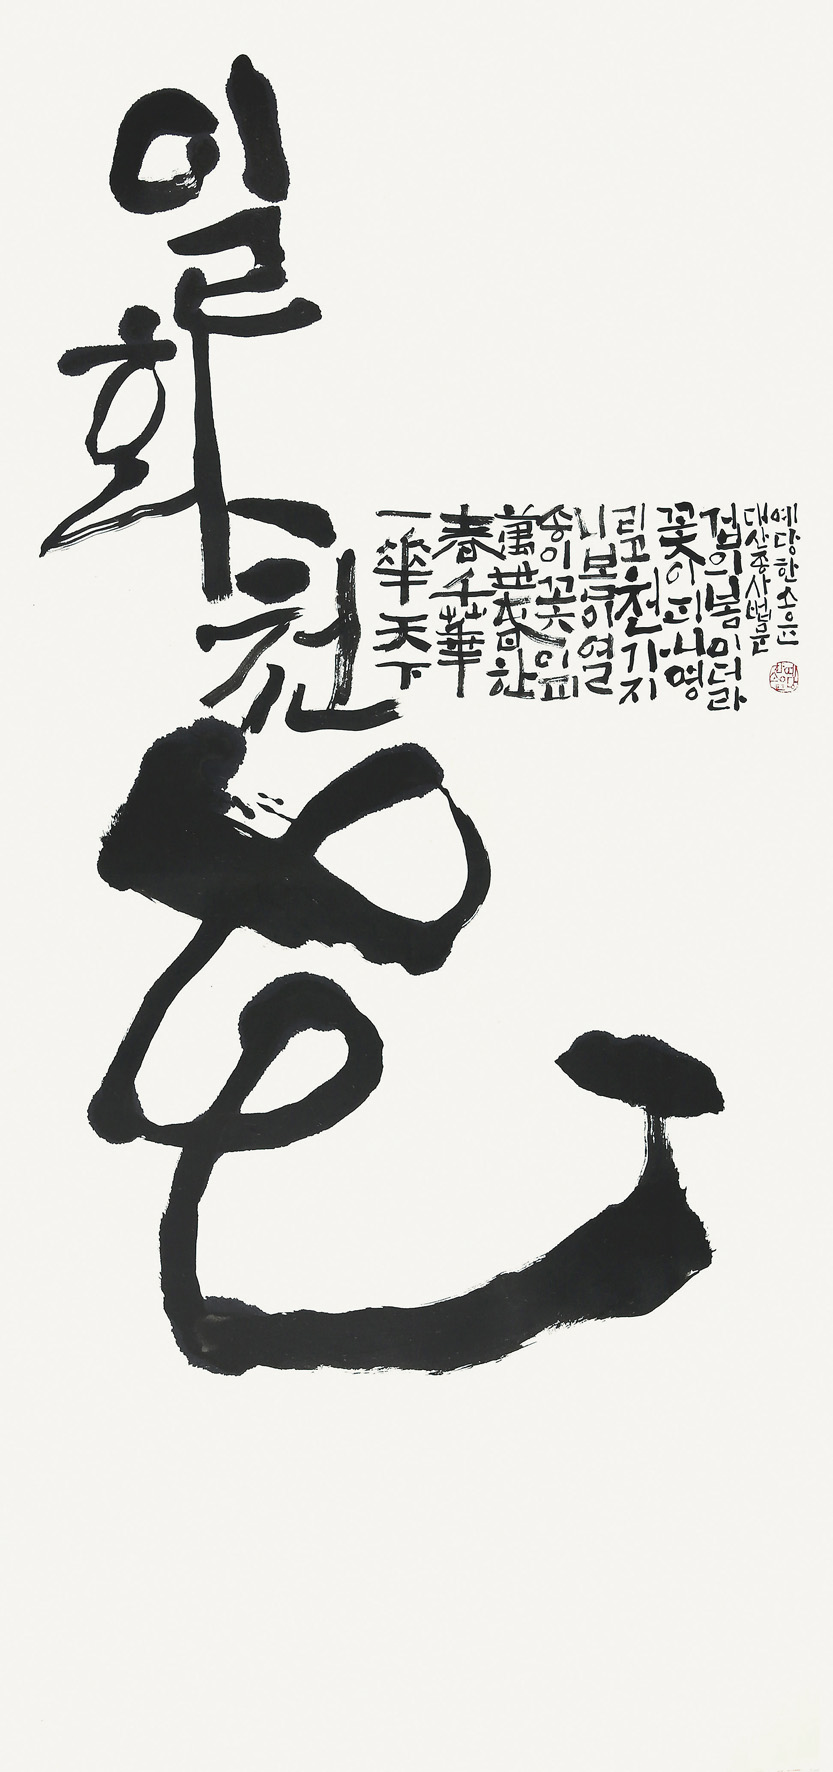 일화천
一華天下
春千華
萬世春한
송이꽃이피
니봄이열
리고천가지
꽃이피니영
겁의봄이더라
대산종사법문
예당한소윤